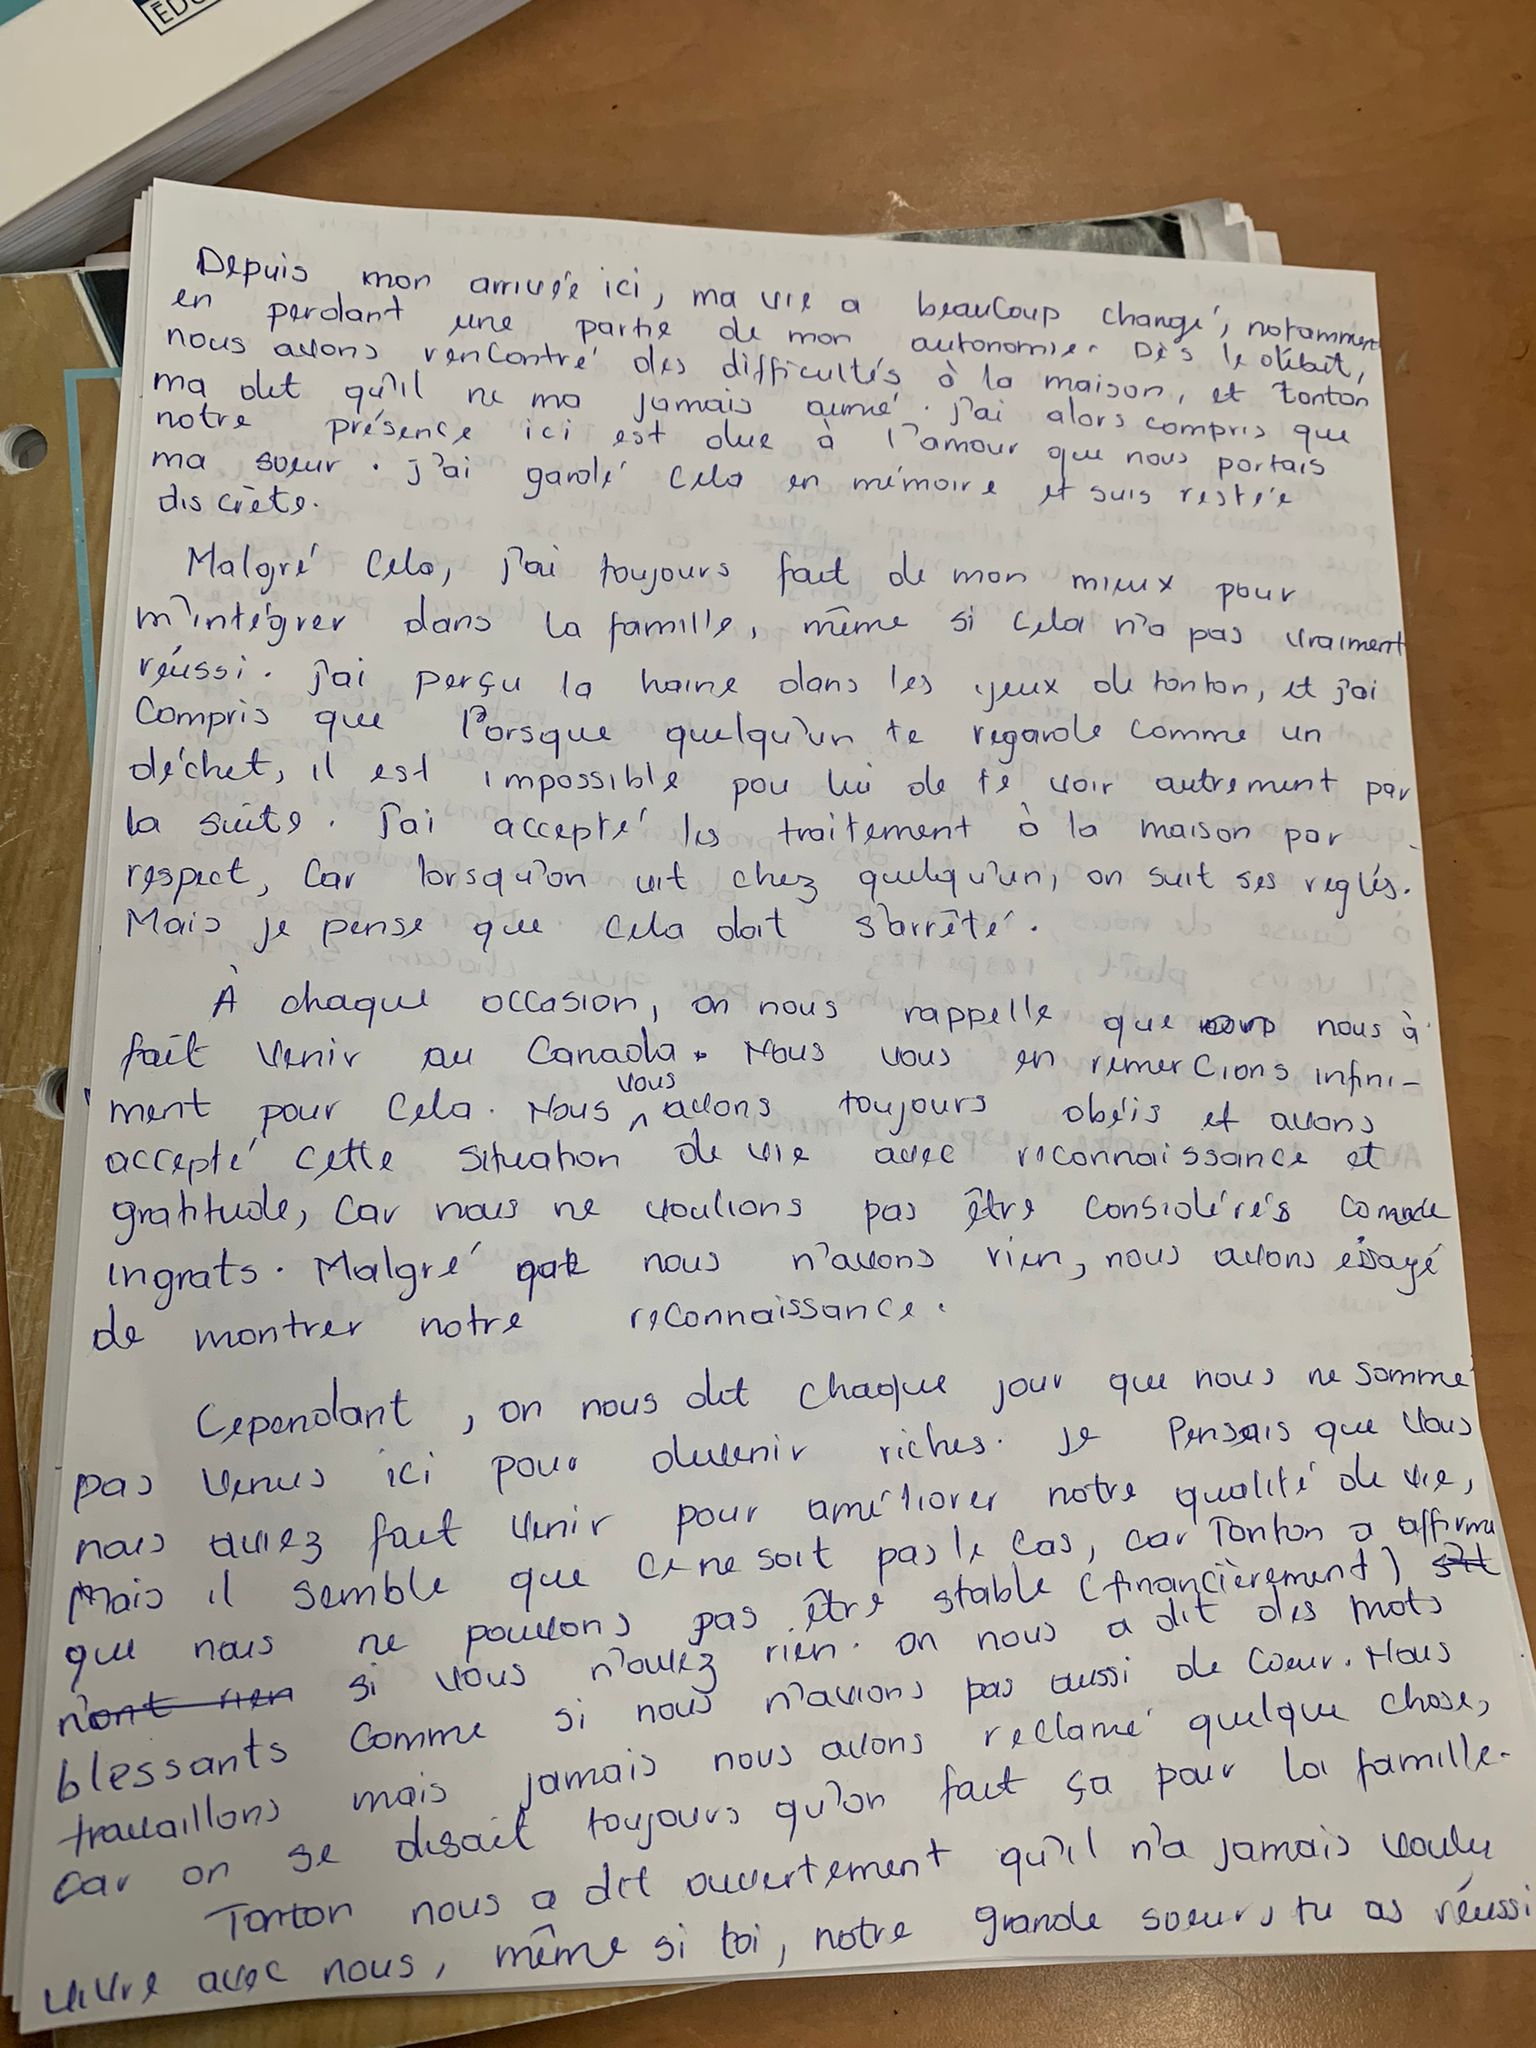 ÉDU
Depuis mon arrivée ici, ma vie a beaucoup changé, notamment
en perdant une partie de mon autonomie. Dès le début,
nous avons rencontré des difficultés à la maison, et tonton
ma dit qu'il ne ma jamais aimé. j'ai alors compris que
notre présence ici est due à l'amour que nous portais
ma sœur. j'ai gardé cela en mémoire et suis restée
discrète.
Malgré cela, j'ai toujours fait de mon mieux pour
m'intégrer dans la famille, même si cela n'a pas vraiment
réussi. j'ai perçu la haine dans les yeux de tonton, et j'ai
compris que lorsque quelqu'un te regarde comme un
déchet, il est impossible pou lui de te voir autrement par
la suite. j'ai accepté les traitement à la maison par
respect, car lorsqu'on vit chez quelqu'un, on suit ses reglés.
Mais je pense que cela doit s'arrêté.
À chaque occasion, on nous rappelle que nous à
fait venir au Canada. Nous vous en remercions infini-
ment pour cela. Nous vous avons toujours obéis et avons
accepté cette situation de vie avec reconnaissance et
gratitude, car nous ne voulions pas être considérés comme
ingrats. Malgré que nous n'avons rien, nous avons essayé
de montrer notre reconnaissance.
Cependant, on nous dit chaque jour que nous ne somme
pas venus ici pour devenir riches. je pensais que vous
nous aviez fait venir pour améliorer notre qualité de vie,
Mais il semble que ce ne soit pas le cas, car Tonton a affirmé
que nous ne pouvons pas être stable (financièrement)
n'ont rien si vous n'avez rien. on nous a dit des mots
blessants comme si nous n'avions pas aussi de cœur. Nous
travaillons mais jamais nous avons reclamé quelque chose,
car on se disait toujours qu'on fait ça pour la famille.
Tonton nous a dit ouvertement qu'il n'a jamais voulu
vivre avec nous, même si toi, notre grande sœur, tu as réussi